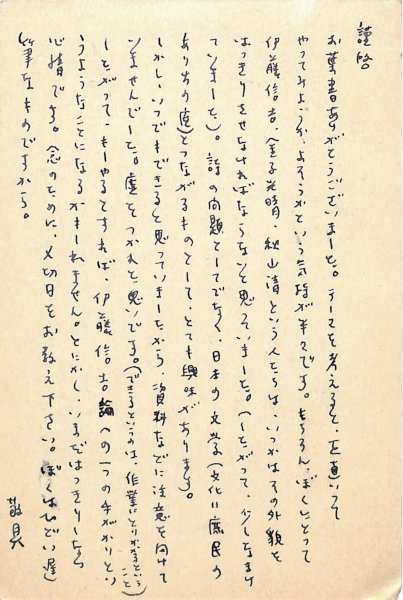 謹啓
お葉書ありがとうございました。テーマを考えると、正直いって
やってみようか、よそうかという気持が半々です。もちろん、ぼくにとって
伊藤信吉、金子光晴、秋山清という人たちは、いつかはその外貌を
はっきりさせなければならないと思っていました。(したがって、少しなまけ
ていました)。詩の問題としてでなく、日本の文学(文化に庶民の
あり方の直)とつながるものとして、とても興味があります)。
しかし、いつでもできると思っていましたから、資料などに注意を向けて
いませんでした。虚をつかれた思いです。(できるというのは、作業にとりかかるということ)
したがって、もしやるとすれば、伊藤信吉論への一つの手がかりとい
うようなことになるかもしれません。とにかく、いまだはっきりしない
心情です。念のために、〆切日をお教え下さい。ぼくはひどい遅
筆なものですから。
敬具